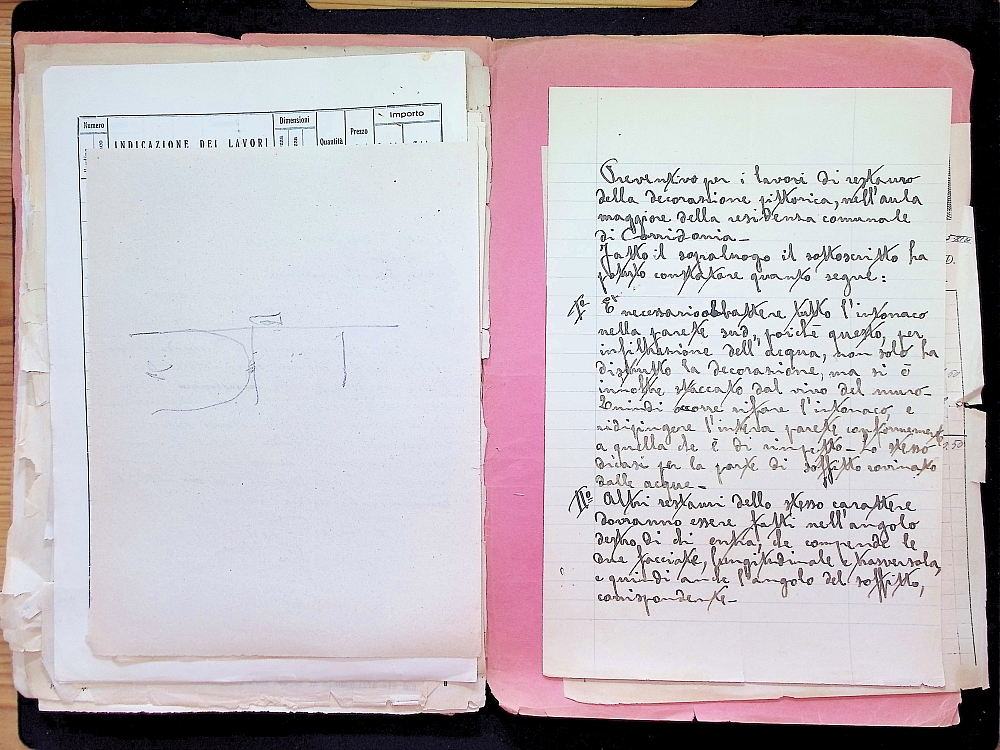 Numero
INDICAZIONE DEI LAVORI
Dimensioni
Quantità
Prezzo
Importo
Preventivo per i lavori di restauro
della decorazione pittorica, nell'aula
maggiore della residenza comunale
di Corridonia_
Fatto il sopraluogo il sottoscritto ha
potuto constatare quanto segue:
I° È necessario abbattere tutto l'intonaco
nella parete sud, poichè questo, per
infiltrazione dell'acqua, non solo ha
distrutto la decorazione, ma si è
inoltre staccato dal vivo del muro_
Quindi occorre rifare l'intonaco, e
ridipingere l'intera parete conformemente
a quella che è di rimpetto_ Lo stesso
dicasi per la parte di soffitto rovinato
dalle acque_
II° Altri restauri dello stesso carattere
dovranno essere fatti nell'angolo
destro di chi entra, che comprende le
due facciate, longitudinale e trasversale,
e quindi anche l'angolo del soffitto,
corrispondente_